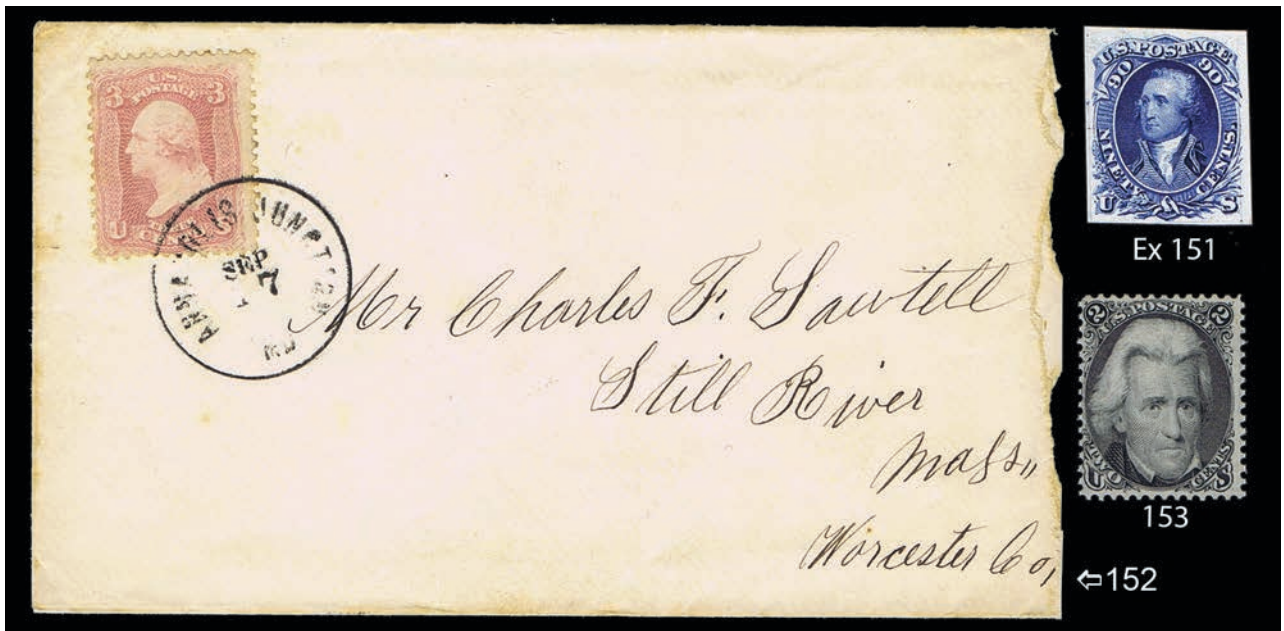 3 3
U.S.
POSTAGE
U
ANNAPOLIS JUNCTION
SEP
7
MD
Mr Charles F. Sawtell
Still River
Mass,,
Worcester Co,
U.S. POSTAGE
90 90
NINETY CENTS.
U S
Ex 151
2 2
U.S. POSTAGE
TWO CENTS.
U S
153
⇦152